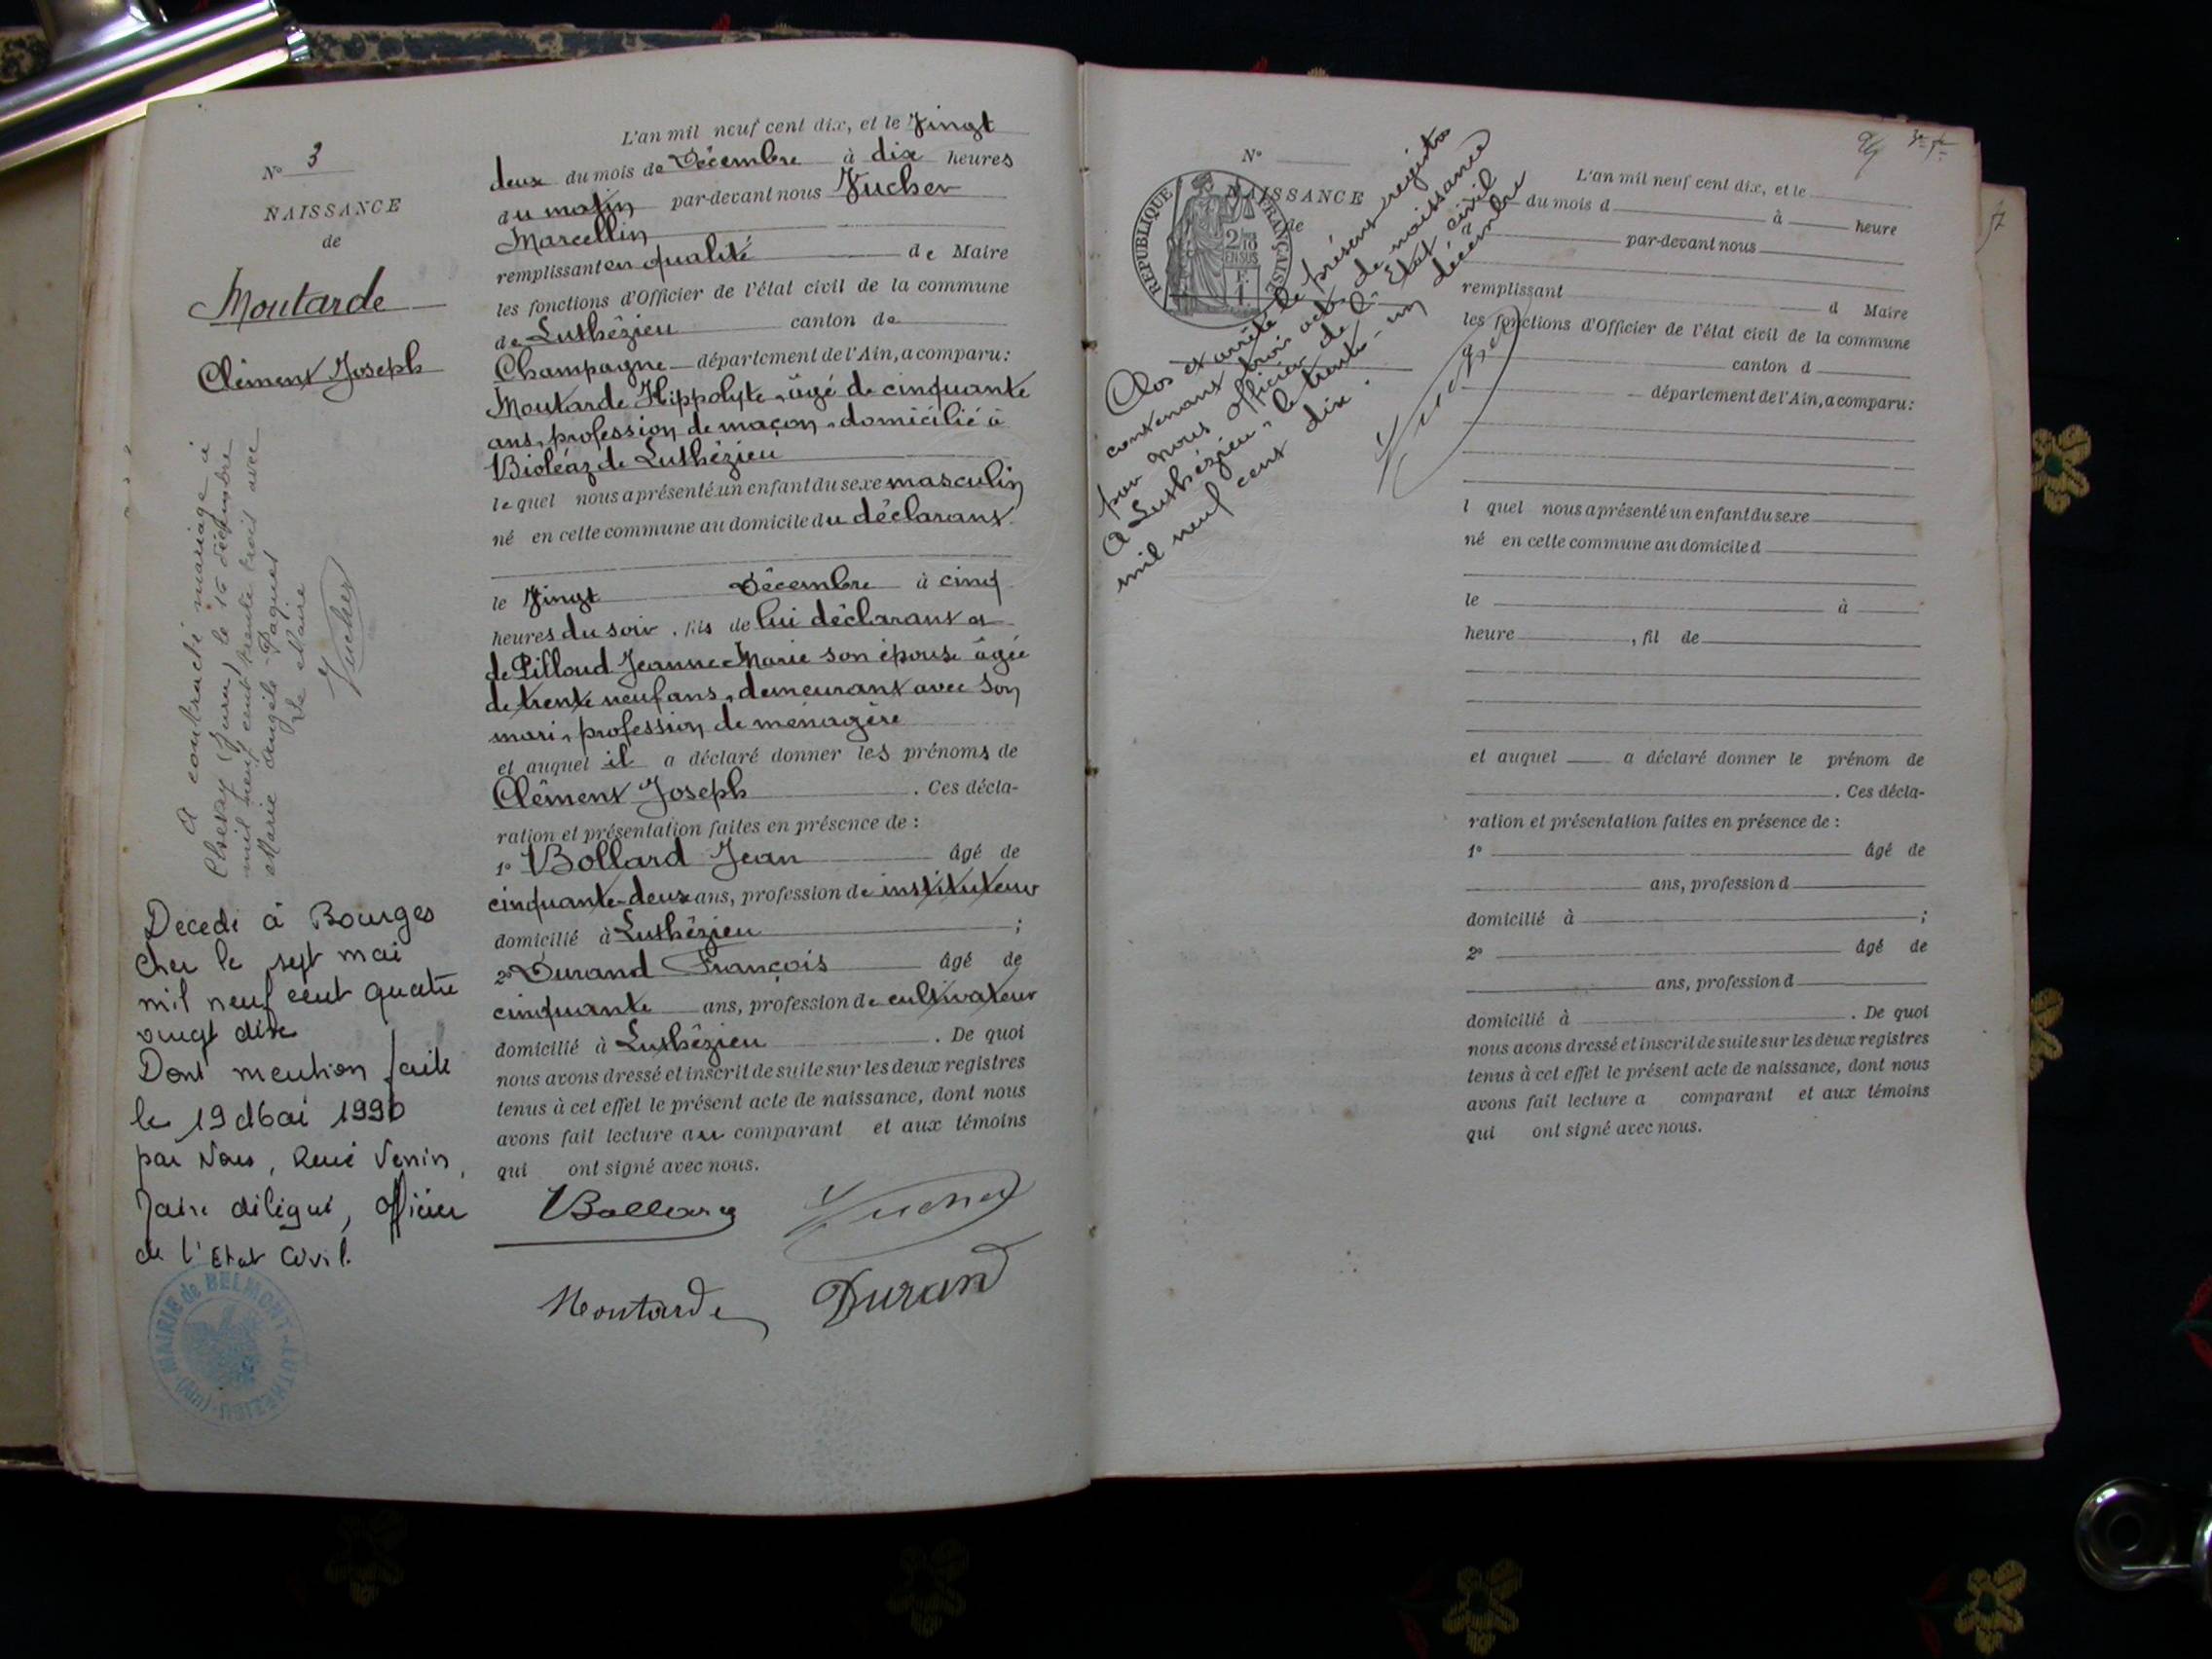 N° 3
NAISSANCE
de
Moutarde
Clément Joseph
A contracté mariage à
Chessy (Jura) le 15 décembre
mil neuf cent trente trois avec
Marie Angèle Paquet
Le Maire
Vucher
Décédé à Bourges
Cher le sept mai
mil neuf cent quatre
vingt dix
Dont mention faite
le 19 Mai 1990
par Nous, René Venin,
Maire délégué, officier
de l'Etat Civil.
MAIRIE de BELMONT-LUTHEZIEU (Ain)
L'an mil neuf cent dix, et le Vingt
deux du mois de Décembre à dix heures
du matin par-devant nous Vucher
Marcellin
remplissant en qualité de Maire
les fonctions d'Officier de l'état civil de la commune
de Luthézieu canton de
Champagne département de l'Ain, a comparu :
Moutarde Hippolyte, âgé de cinquante
ans, profession de maçon, domicilié à
Bioléaz de Luthézieu
lequel nous a présenté un enfant du sexe masculin
né en cette commune au domicile du déclarant.
le Vingt Décembre à cinq
heures du soir, fils de lui déclarant et
de Pilloud Jeanne Marie son épouse âgée
de trente neuf ans, demeurant avec son
mari, profession de ménagère
et auquel il a déclaré donner les prénoms de
Clément Joseph. Ces décla-
ration et présentation faites en présence de :
1° Bollard Jean âgé de
cinquante-deux ans, profession de instituteur
domicilié à Luthézieu ;
2° Durand François âgé de
cinquante ans, profession de cultivateur
domicilié à Luthézieu. De quoi
nous avons dressé et inscrit de suite sur les deux registres
tenus à cet effet le présent acte de naissance, dont nous
avons fait lecture au comparant et aux témoins
qui ont signé avec nous.
Bollard Vucher
Moutarde Durand
3e fe
N°
NAISSANCE
de
REPUBLIQUE FRANÇAISE
2/10
EN SUS
F.
1.
Clos et arrêté le présent registre
contenant trois actes de naissance
par nous officier de l'Etat civil
A Luthézieu, le trente-un décembre
mil neuf cent dix.
Vucher
L'an mil neuf cent dix, et le
du mois d à heure
par-devant nous
remplissant d Maire
les fonctions d'Officier de l'état civil de la commune
d canton d
département de l'Ain, a comparu :
l quel nous a présenté un enfant du sexe
né en cette commune au domicile d
le à
heure , fil de
et auquel a déclaré donner le prénom de
. Ces décla-
ration et présentation faites en présence de :
1° âgé de
ans, profession d
domicilié à ;
2° âgé de
ans, profession d
domicilié à . De quoi
nous avons dressé et inscrit de suite sur les deux registres
tenus à cet effet le présent acte de naissance, dont nous
avons fait lecture a comparant et aux témoins
qui ont signé avec nous.